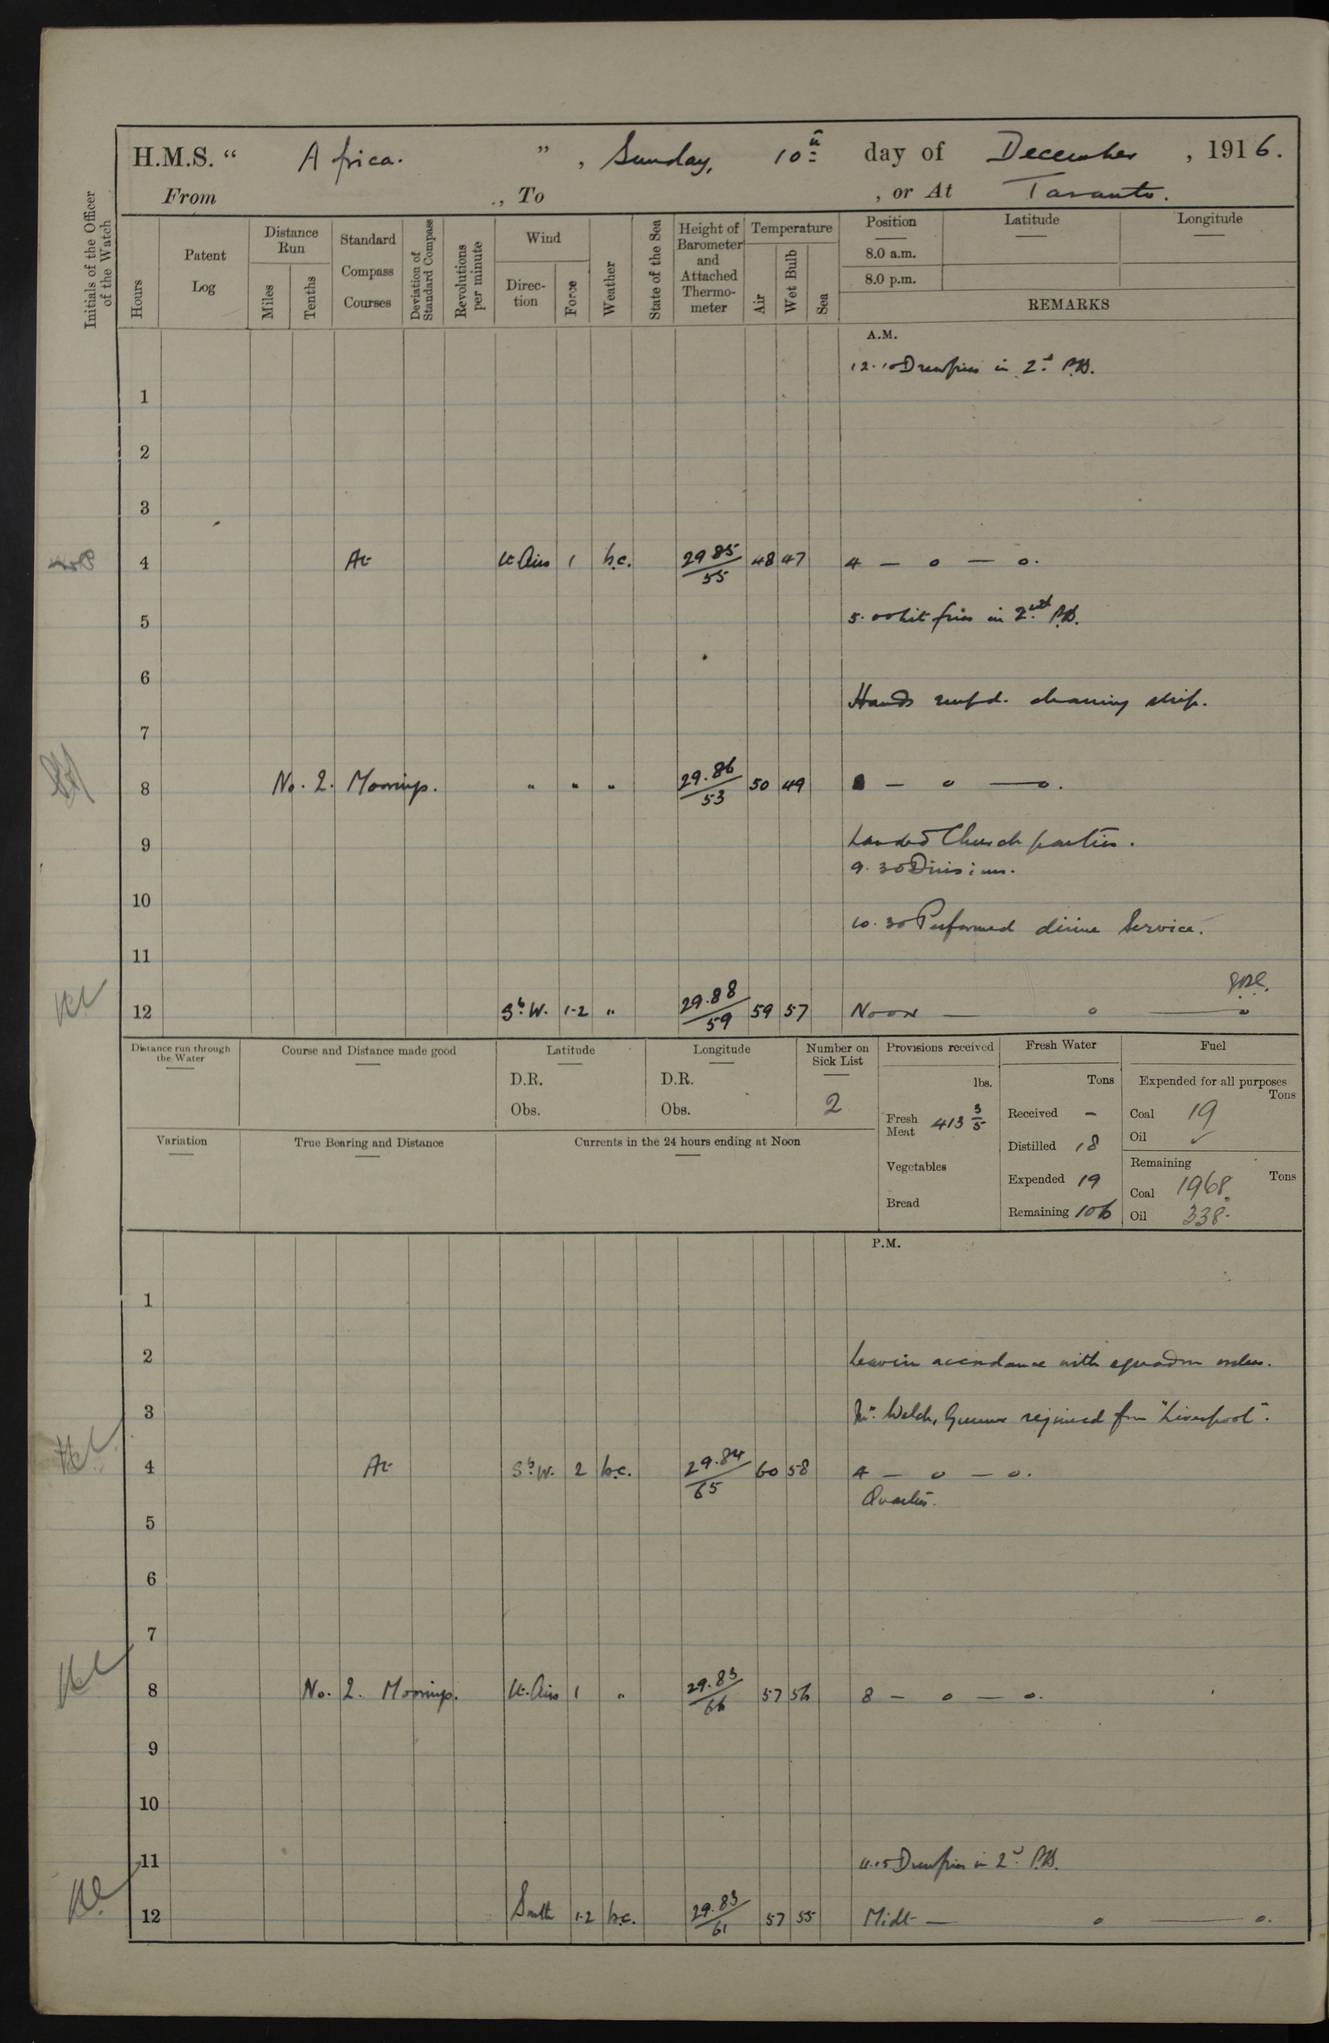 H.M.S. “ Africa. ” , Sunday, 10th day of December , 1916.
From , To , or At Taranto.
Initials of the Officer of the Watch
Hours
Patent Log
Distance Run
Miles
Tenths
Standard Compass Courses
Deviation of Standard Compass
Revolutions per minute
Wind
Direc-tion
Force
Weather
State of the Sea
Height of Barometer and Attached Thermo-meter
Temperature
Air
Wet Bulb
Sea
Position
Latitude
Longitude
8.0 a.m.
8.0 p.m.
REMARKS
A.M.
12.10 Drew fires in 2nd P.B.
1
2
3
4 At Lt Airs 1 b.c. 29 85/55 48 47 4 — o — o.
5 5.00 Lit fires in 2nd P.B.
6
Hands empd. cleaning ship.
7
8 No. 2. Moorings. " " " 29.86/53 50 49 8 — o — o.
9 Landed Church parties.
9.30 Divisions.
10
10.30 Performed divine Service.
11
12 SbW. 1-2 " 29.88/59 59 57 Noon — o — o
Distance run through the Water
Course and Distance made good
Latitude
D.R.
Obs.
Longitude
D.R.
Obs.
Number on Sick List
2
Variation
True Bearing and Distance
Currents in the 24 hours ending at Noon
Provisions received
lbs.
Fresh Meat 413 3/5
Vegetables
Bread
Fresh Water
Tons
Received –
Distilled 18
Expended 19
Remaining 106
Fuel
Expended for all purposes
Tons
Coal 19
Oil ✓
Remaining
Tons
Coal 1968.
Oil 338.
P.M.
1
2 Leave in accordance with squadron orders.
3 Mr. Welch, Gunner rejoined from "Liverpool".
4 At SbW. 2 b.c. 29.84/65 60 58 4 — o — o.
Quarters.
5
6
7
8 No. 2. Moorings. Lt. Airs 1 " 29.83/66 57 56 8 — o — o.
9
10
11 11.15 Drew fires in 2nd P.B.
12 South 1-2 b.c. 29.83/61 57 55 Midt — o — o.